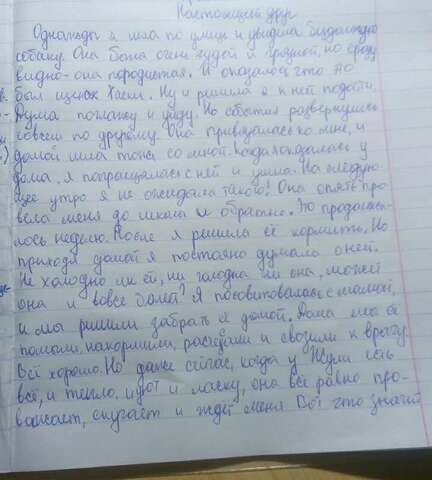 Настоящий друг
Однажды я шла по улице и увидела бездомную
собаку. Она была очень худой и грязной, но сразу
видно-она породистая. И оказалось что это
был щенок Хаски. Ну и решила я к ней подойти.
Думала поглажу и уйду. Но события развернулись
совсем по другому. Она привязалась ко мне, и
домой шла тоже со мной. Когда я оказалась у
дома, я попращалась с ней и ушла. На следую-
щее утро я не ожидала такого! Она опять про-
вела меня до школы и обратно. Это продолжа-
лось неделю. После я решила её кормить. Но
приходя домой я постоянно думала о ней.
Не холодно ли ей, не голодна ли она, может
она и вовсе болеет? Я посоветовалась с мамой,
и мы решили забрать её домой. Дома мы её
помыли, накормили, расчесали и свозили к врачу.
Всё хорошо. Но даже сейчас, когда у Жули есть
всё, и тепло, уют и ласку, она всё равно про-
важает, скучает и ждёт меня Вот что значит